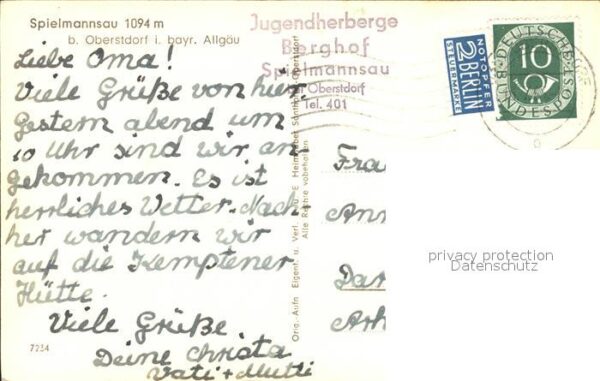 Spielmannsau 1094 m
b. Oberstdorf i. bayr. Allgäu
Liebe Oma!
Viele Grüße von hier.
Gestern abend um
10 Uhr sind wir an
gekommen. Es ist
herrliches Wetter. Nach-
her wandern wir
auf die Kemptener
Hütte.
Viele Grüße
Deine Christa
Vati + Mutti
7234
Jugendherberge
Berghof
Spielmannsau
Oberstdorf
Tel. 401
NOTOPFER
2 BERLIN
STEUERMARKE
DEUTSCHE
BUNDESPOST
10
Orig.-Aufn. Eigent. u. Verl. E. Heimhuber Sonthofen-Oberstdorf
Alle Rechte vorbehalten
Fra
Ann
Dar
privacy protection
Datenschutz